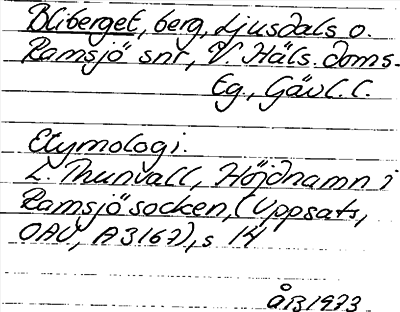 Bliberget, berg, Ljusdals o.
Ramsjö snr, V. Häls. doms-
Eg., Gävl. l.
Etymologi.
L. Thunvall, Höjdnamn i
Ramsjö socken, (Uppsats,
OAU, A3167), s 14
ÅB 1973